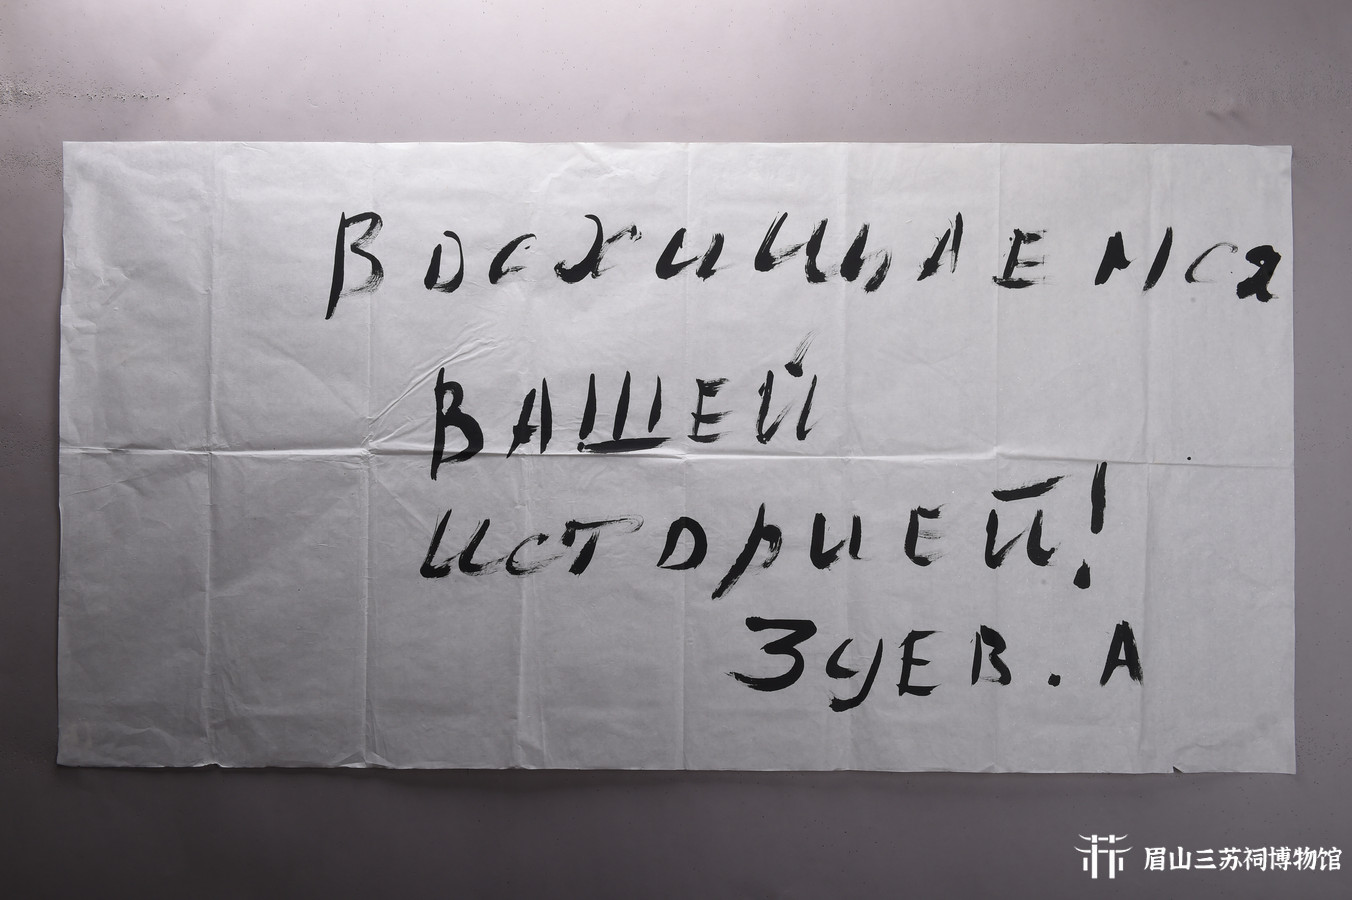 Восхищьаемся
ВАШЕЙ
историей!
Зуев.А
眉山三苏祠博物馆